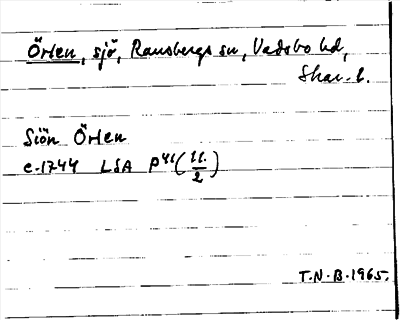 Örlen, sjö, Ransbergs sn, Vadsbo hd,
Skar. l.
Siön Örlen
c. 1744 LSA P41 (11./2)
T.N.B. 1965.